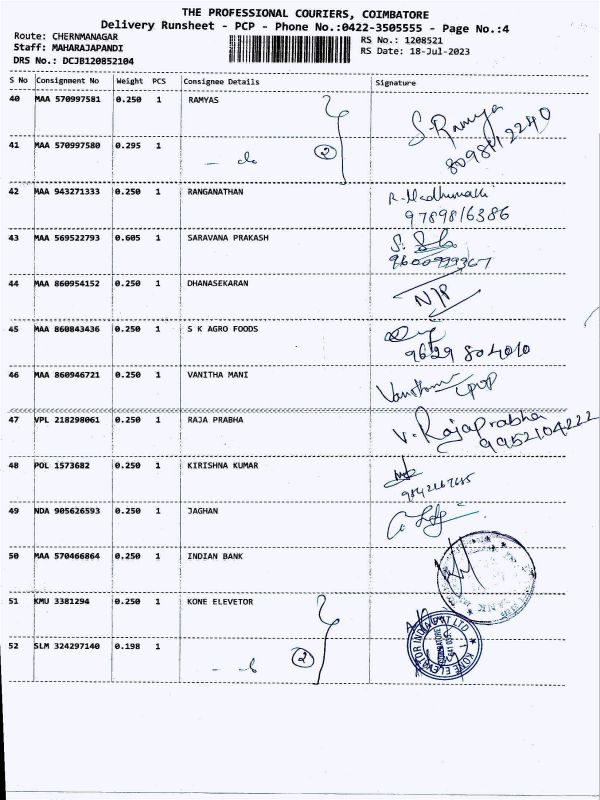 THE PROFESSIONAL COURIERS, COIMBATORE
Delivery Runsheet - PCP - Phone No.:0422-3505555 - Page No.:4
Route: CHERNMANAGAR
RS No.: 1208521
Staff: MAHARAJAPANDI
RS Date: 18-Jul-2023
DRS No.: DCJB120852104
S No Consignment No Weight PCS Consignee Details Signature
40 MAA 570997581 0.250 1 RAMYAS S. Ramya
41 MAA 570997580 0.295 1 - do 2
42 MAA 943271333 0.250 1 RANGANATHAN
9789816386
43 MAA 569522793 0.605 1 SARAVANA PRAKASH
9600999367
44 MAA 860954152 0.250 1 DHANASEKARAN N/P
45 MAA 860843436 0.250 1 S K AGRO FOODS
9629 804010
46 MAA 860946721 0.250 1 VANITHA MANI
47 VPL 218298061 0.250 1 RAJA PRABHA V. Rajaprabha
9952104222
48 POL 1573682 0.250 1 KIRISHNA KUMAR
49 NDA 905626593 0.250 1 JAGHAN
50 MAA 570466864 0.250 1 INDIAN BANK
51 KMU 3381294 0.250 1 KONE ELEVETOR
52 SLM 324297140 0.198 1 2
KONE ELEVATOR INDIA PVT LTD